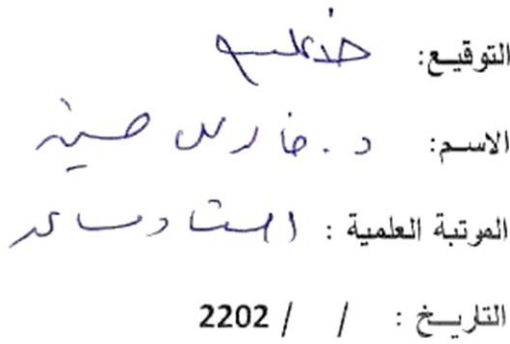 التوقيع:
الاسم: د. فارس حسين
المرتبة العلمية : استاذ مساعد
التاريخ : / / 2202